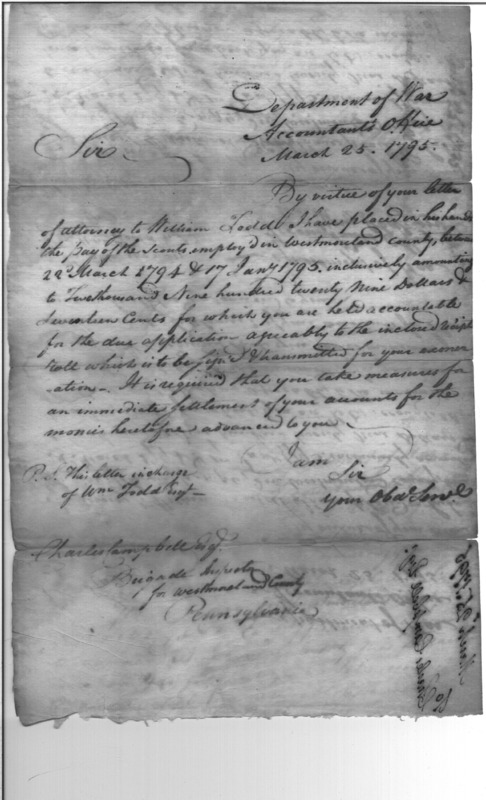 Department of War
Accountants Office
March 25. 1795.
Sir
By virtue of your letter
of attorney to William Todd I have placed in his hands
the pay of the scouts employ'd in Westmoreland county, between
22d March 1794 & 17 Jany 1795. inclusively, amounting
to Two thousand Nine hundred twenty Nine Dollars &
Seventeen Cents for which you are held accountable
for the due application agreeably to the inclosed receipt
roll which is to be sign'd & transmitted for your exoner
ation. It is required that you take measures for
an immediate settlement of your accounts for the
monies heretofore advanced to you
I am
Sir
your Obdt Servt
P.S. This letter in charge
of Wm Todd Esqr
Charles Campbell Esqr.
Brigade Inspector
for Westmoreland County
Pennsylvania
To
Charles Campbell Esqr
March 25. 1795